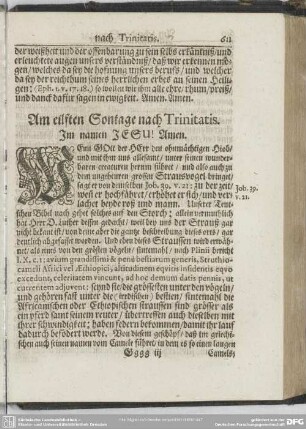 nach Trinitatis. 611
der weißheit und der offenbarung zu sein selbs erkäntnuß/ und
erleuchtete augen unsers verständnuß/ daß wer erkennen mö-
gen/ welches da sey die hofnung unsers beruffs/ und welcher
da sey der reichthum seines herrlichen erbes an seinen Heili-
gen: (Eph. 1. v. 17. 18.) so wollen wir ihm alle ehre/ rhum/ preiß/
und danck dafür sagen in ewigkeit. Amen. Amen.
Am eilften Sontage nach Trinitatis.
Im namen JESU! Amen.
Wenn GOtt der HErr den ohnmächtigen Hiob/
und mit ihm uns allesamt/ unter seinen wunder-
baren creaturen herum führet/ und also auch zu
dem ungeheuren grossen Straussvogel bringet/
sagt er von demselben Job. 39. v. 21: zu der zeit/
wenn er hochfähret/ erhöhet er sich/ und ver-
lachet beyde roß und mann. Unsrer Teut-
Job. 39.
v. 21.
schen Bibel nach gehet solches auf den Storch; allein vermuthlich
hat Herr D. Luther dessen gedacht/ weil bey uns der Strauß gar
nicht bekant ist/ von dem aber die gantze beschreibung dieses orts/ gar
deutlich abgefasset worden. Und eben dieses Straussen wird erwäh-
net/ als eines von den grösten vögeln/ sintemahl/ nach Plinii bericht
l. X. c. 1: avium grandissimi & penè bestiarum generis, Struthio-
cameli Africi vel Æthiopici, altitudinem equitis insidentis equo
excedunt, celeritatem vincunt, ad hoc demum datis pennis, ut
currentem adjuvent; seynd sie die grössesten unter den vögeln/
und gehören fast unter die (irrdischen) bestien/ sintemahl die
Africanischen oder Ethiopischen straussen sind grösser als
ein pferd samt seinem reuter/ übertreffen auch dieselben mit
ihrer schwindigkeit; haben federn bekommen/ damit ihr lauf
dadurch befödert werde. Von diesem geschöpf/ daß im griechi-
schen auch seinen namen vom Camele führet in dem es so einen langen
Gggg iij Camels-